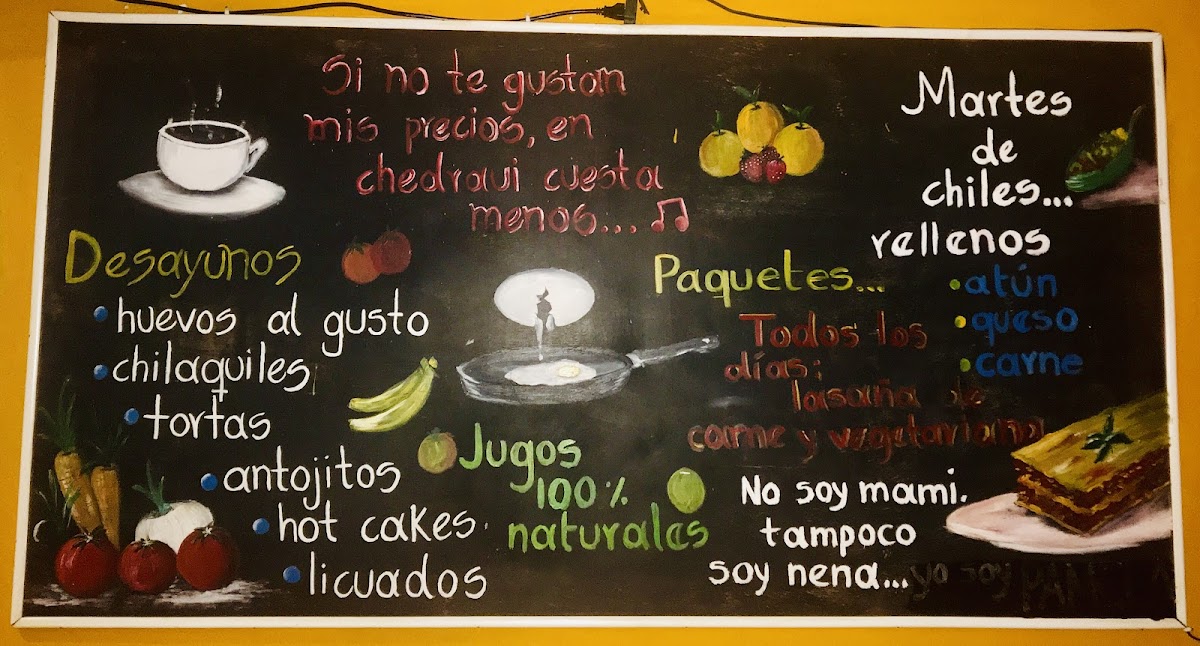 Si no te gustan
mis precios, en
chedraui cuesta
menos...
Desayunos
huevos al gusto
chilaquiles
tortas
antojitos
hot cakes
licuados
Jugos
100%
naturales
Martes
de
chiles...
rellenos
atún
queso
carne
Paquetes...
Todos los
días:
lasaña de
carne y vegetariana
No soy mami.
tampoco
soy nena... yo soy